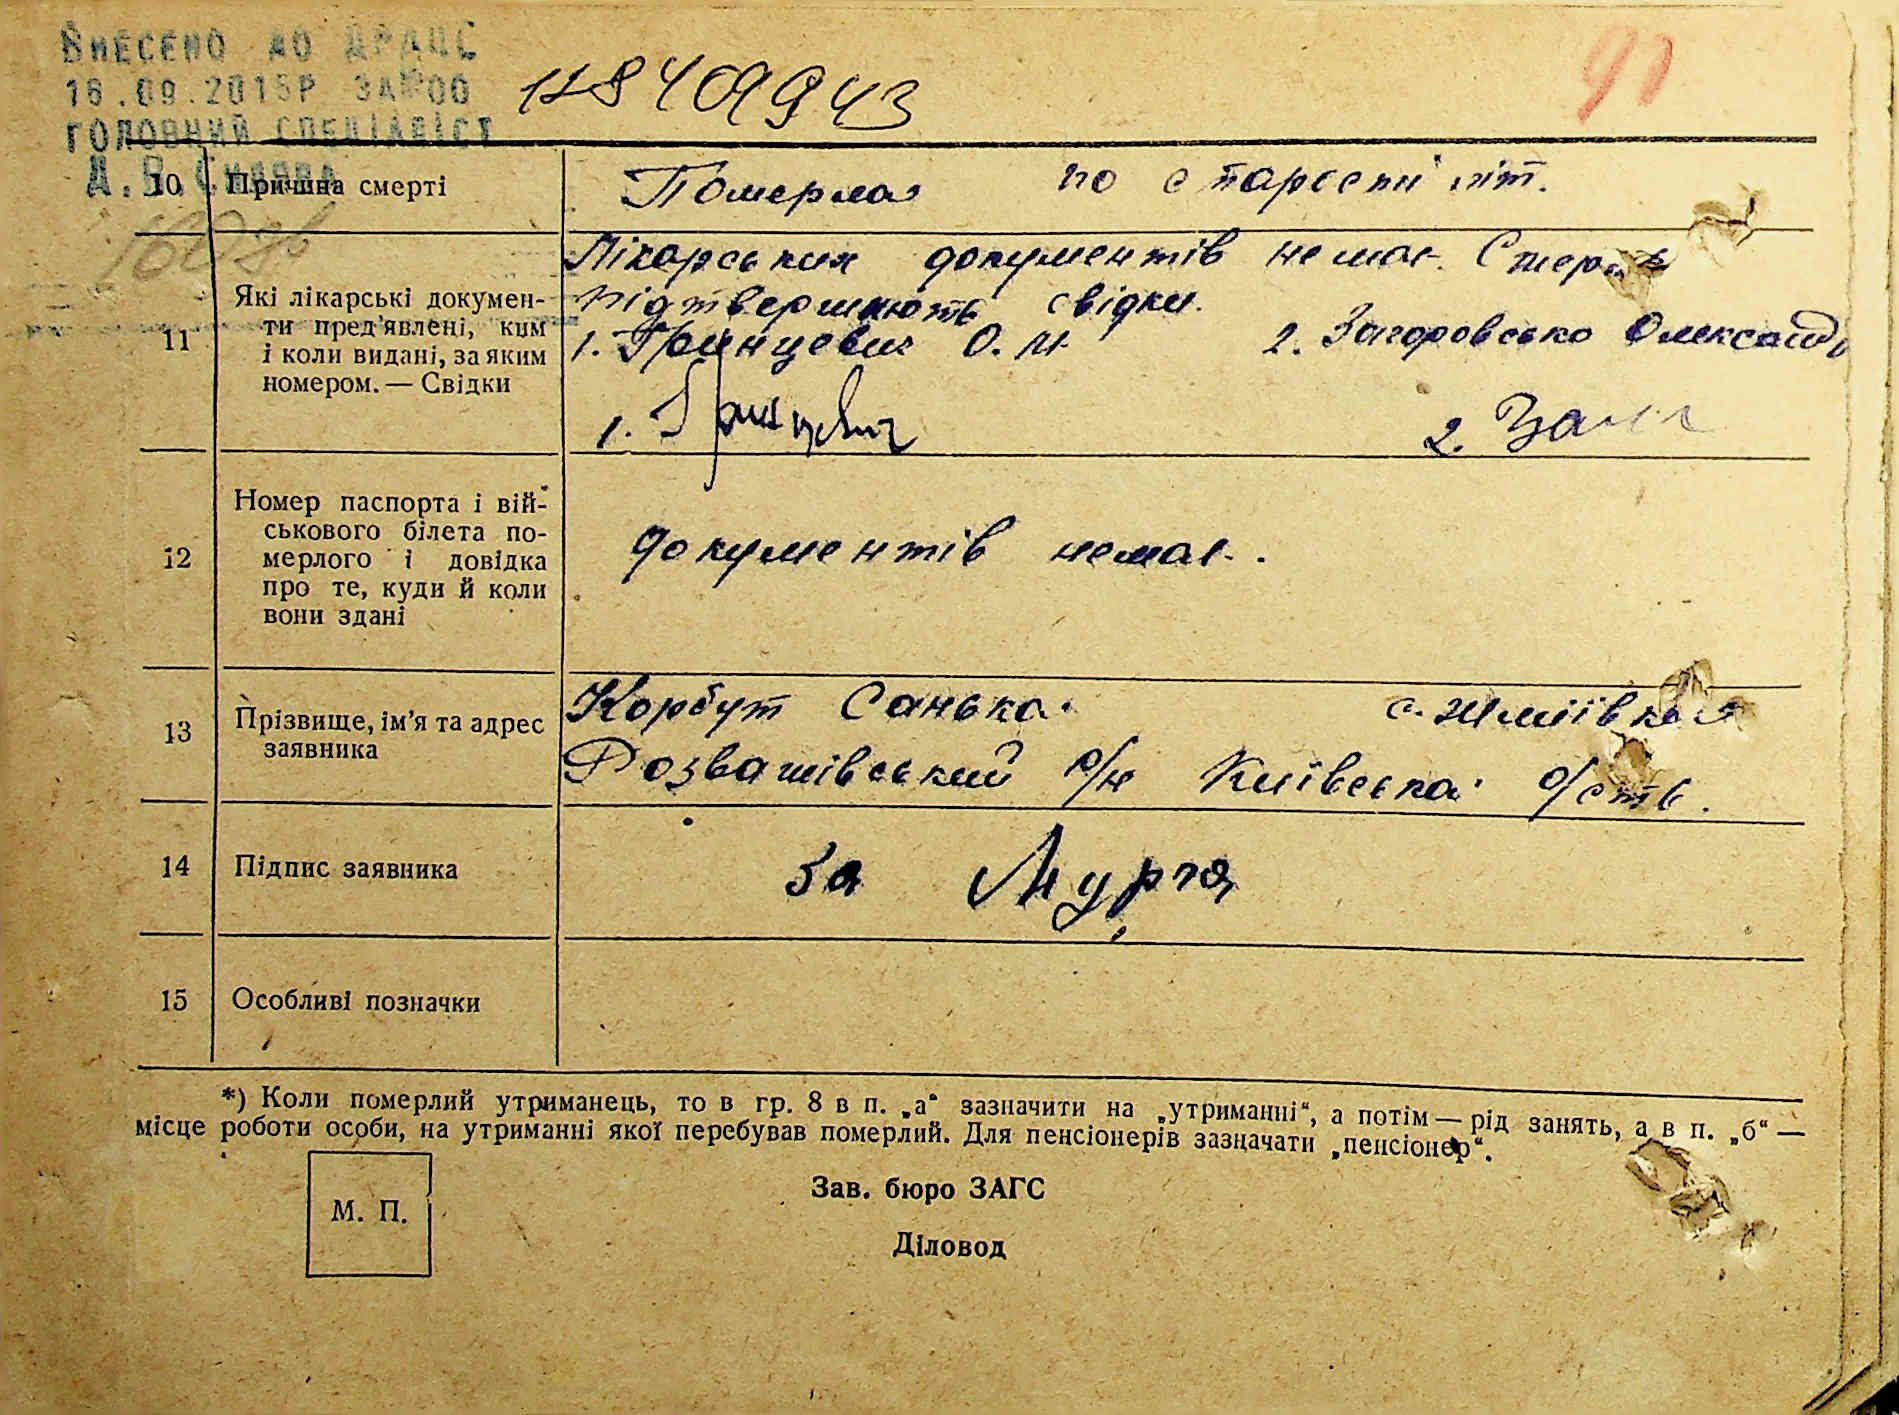 Внесено до ДРАЦС
16.09.2015р за №00
головний спеціаліст
128409943
10 Причина смерті
Померла по старості літ.
11 Які лікарські докумен-
ти пред'явлені, ким
і коли видані, за яким
номером. — Свідки
Лікарських документів немає. Смерть
підтвержують свідки.
1. Грінцевич О. М. 2. Загоровсько Олександ
1. Грінцевич 2. Заг
12 Номер паспорта і вій-
ськового білета по-
мерлого і довідка
про те, куди й коли
вони здані
документів немає.
13 Прізвище, ім'я та адрес
заявника
Корбут Санька. с. Жміївка
Розважівський р/н Київська о/сть.
14 Підпис заявника
за
15 Особливі позначки
*) Коли померлий утриманець, то в гр. 8 в п. „а“ зазначити на „утриманні“, а потім — рід занять, а в п. „б“ —
місце роботи особи, на утриманні якої перебував померлий. Для пенсіонерів зазначати „пенсіонер“.
М. П.
Зав. бюро ЗАГС
Діловод